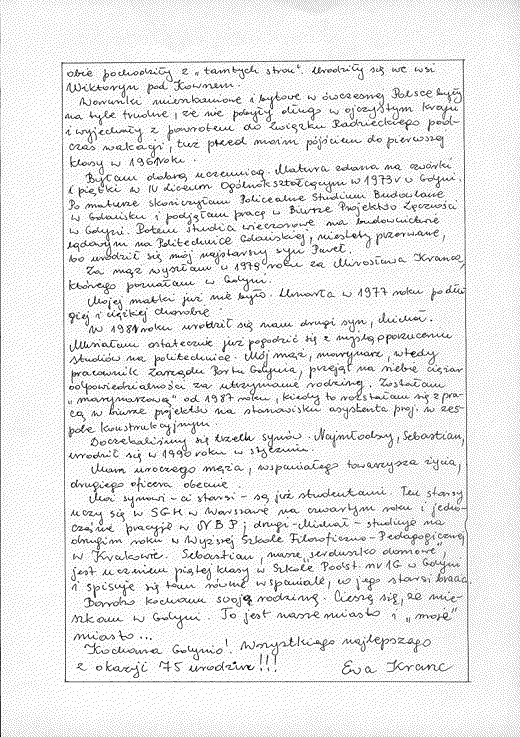 obie pochodziły z „tamtych stron”. Urodziły się we wsi
Wiktoryn pod Kownem.
Warunki mieszkaniowe i bytowe w ówczesnej Polsce były
na tyle trudne, że nie pobyły długo w ojczystym kraju
i wyjechały z powrotem do Związku Radzieckiego pod-
czas wakacji, tuż przed moim pójściem do pierwszej
klasy w 1961 roku.
Byłam dobrą uczennicą. Matura zdana na czwórki
i piątki w IV Liceum Ogólnokształcącym w 1973 r w Gdyni.
Po maturze skończyłam Policealne Studium Budowlane
w Gdańsku i podjęłam pracę w Biurze Projektów Łączności
w Gdyni. Potem studia wieczorowe na budownictwie
lądowym na Politechnice Gdańskiej, niestety przerwane,
bo urodził się mój najstarszy syn Paweł.
Za mąż wyszłam w 1979 roku za Mirosława Kranca,
którego poznałam w Gdyni.
Mojej matki już nie było. Umarła w 1977 roku po dłu-
giej i ciężkiej chorobie.
W 1981 roku urodził się nam drugi syn, Michał.
Musiałam ostatecznie już pogodzić się z myślą o porzuceniu
studiów na politechnice. Mój mąż, marynarz, wtedy
pracownik Zarządu Portu Gdynia, przejął na siebie ciężar
odpowiedzialności za utrzymanie rodziny. Zostałam
„marynarzową” od 1987 roku, kiedy to rozstałam się z pra-
cą w biurze projektów na stanowisku asystenta proj. w zes-
pole konstrukcyjnym.
Doczekaliśmy się trzech synów. Najmłodszy, Sebastian,
urodził się w 1990 roku w styczniu.
Mam uroczego męża, wspaniałego towarzysza życia,
drugiego oficera obecnie.
Moi synowie – ci starsi – są już studentami. Ten starszy
uczy się w SGH w Warszawie na czwartym roku i jedno-
cześnie pracuje w NBP; drugi – Michał – studiuje na
drugim roku w Wyższej Szkole Filozoficzno-Pedagogicznej
w Krakowie. Sebastian, nasze „serduszko domowe”,
jest uczniem piątej klasy w Szkole Podst. nr 16 w Gdyni
i spisuje się tam równie wspaniale, co jego starsi bracia.
Bardzo kocham swoją rodzinę. Cieszę się, że mie-
szkam w Gdyni. To jest nasze miasto i „moje”
miasto...
Kochana Gdynio! Wszystkiego najlepszego
z okazji 75 urodzin!!! Ewa Kranc